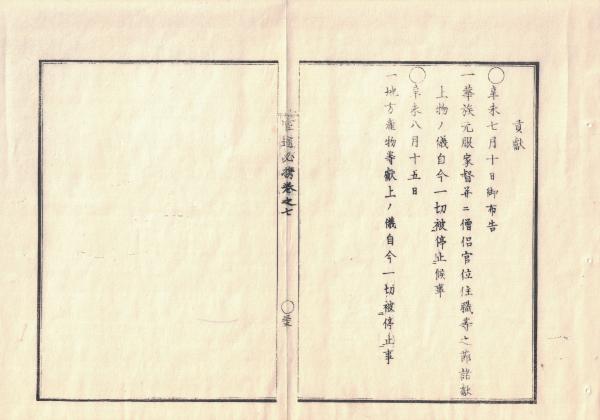 貢献
◯辛未七月十日御布告
一華族元服家督并ニ僧侶官位住職等之節諸献
上物ノ儀自今一切被停止候事
◯辛未八月十五日
一地方産物等献上ノ儀自今一切被停止事
必携巻之七